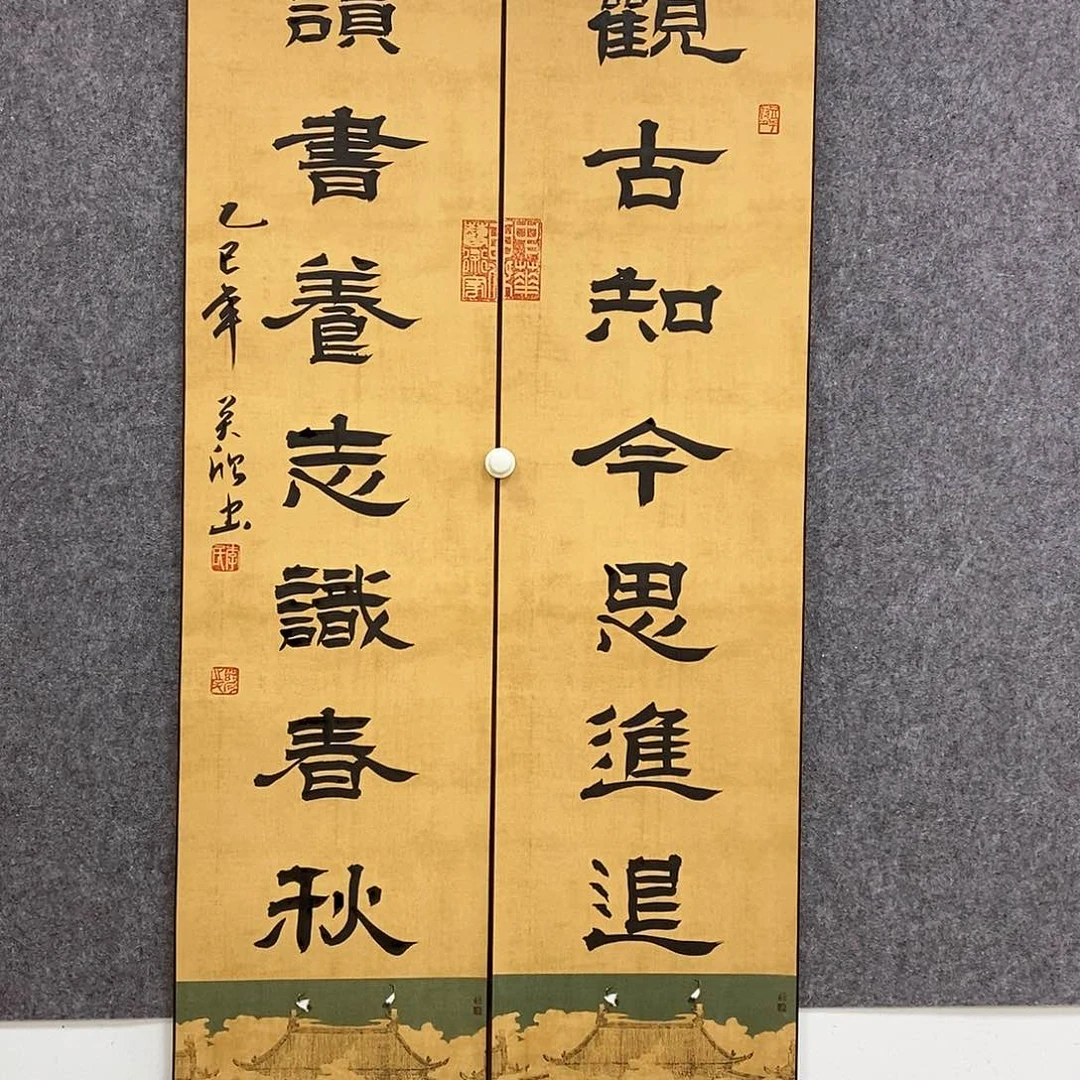 觀古知今思進退
讀書養志識春秋
乙巳年 书